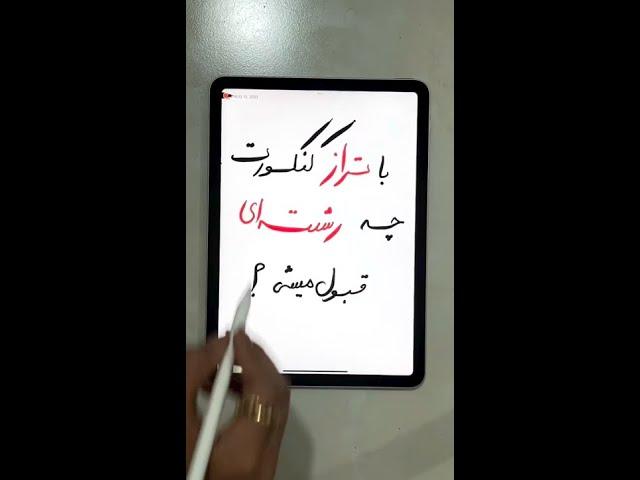 با تراز کنکورت
چه رشته‌ای
قبول میشی؟